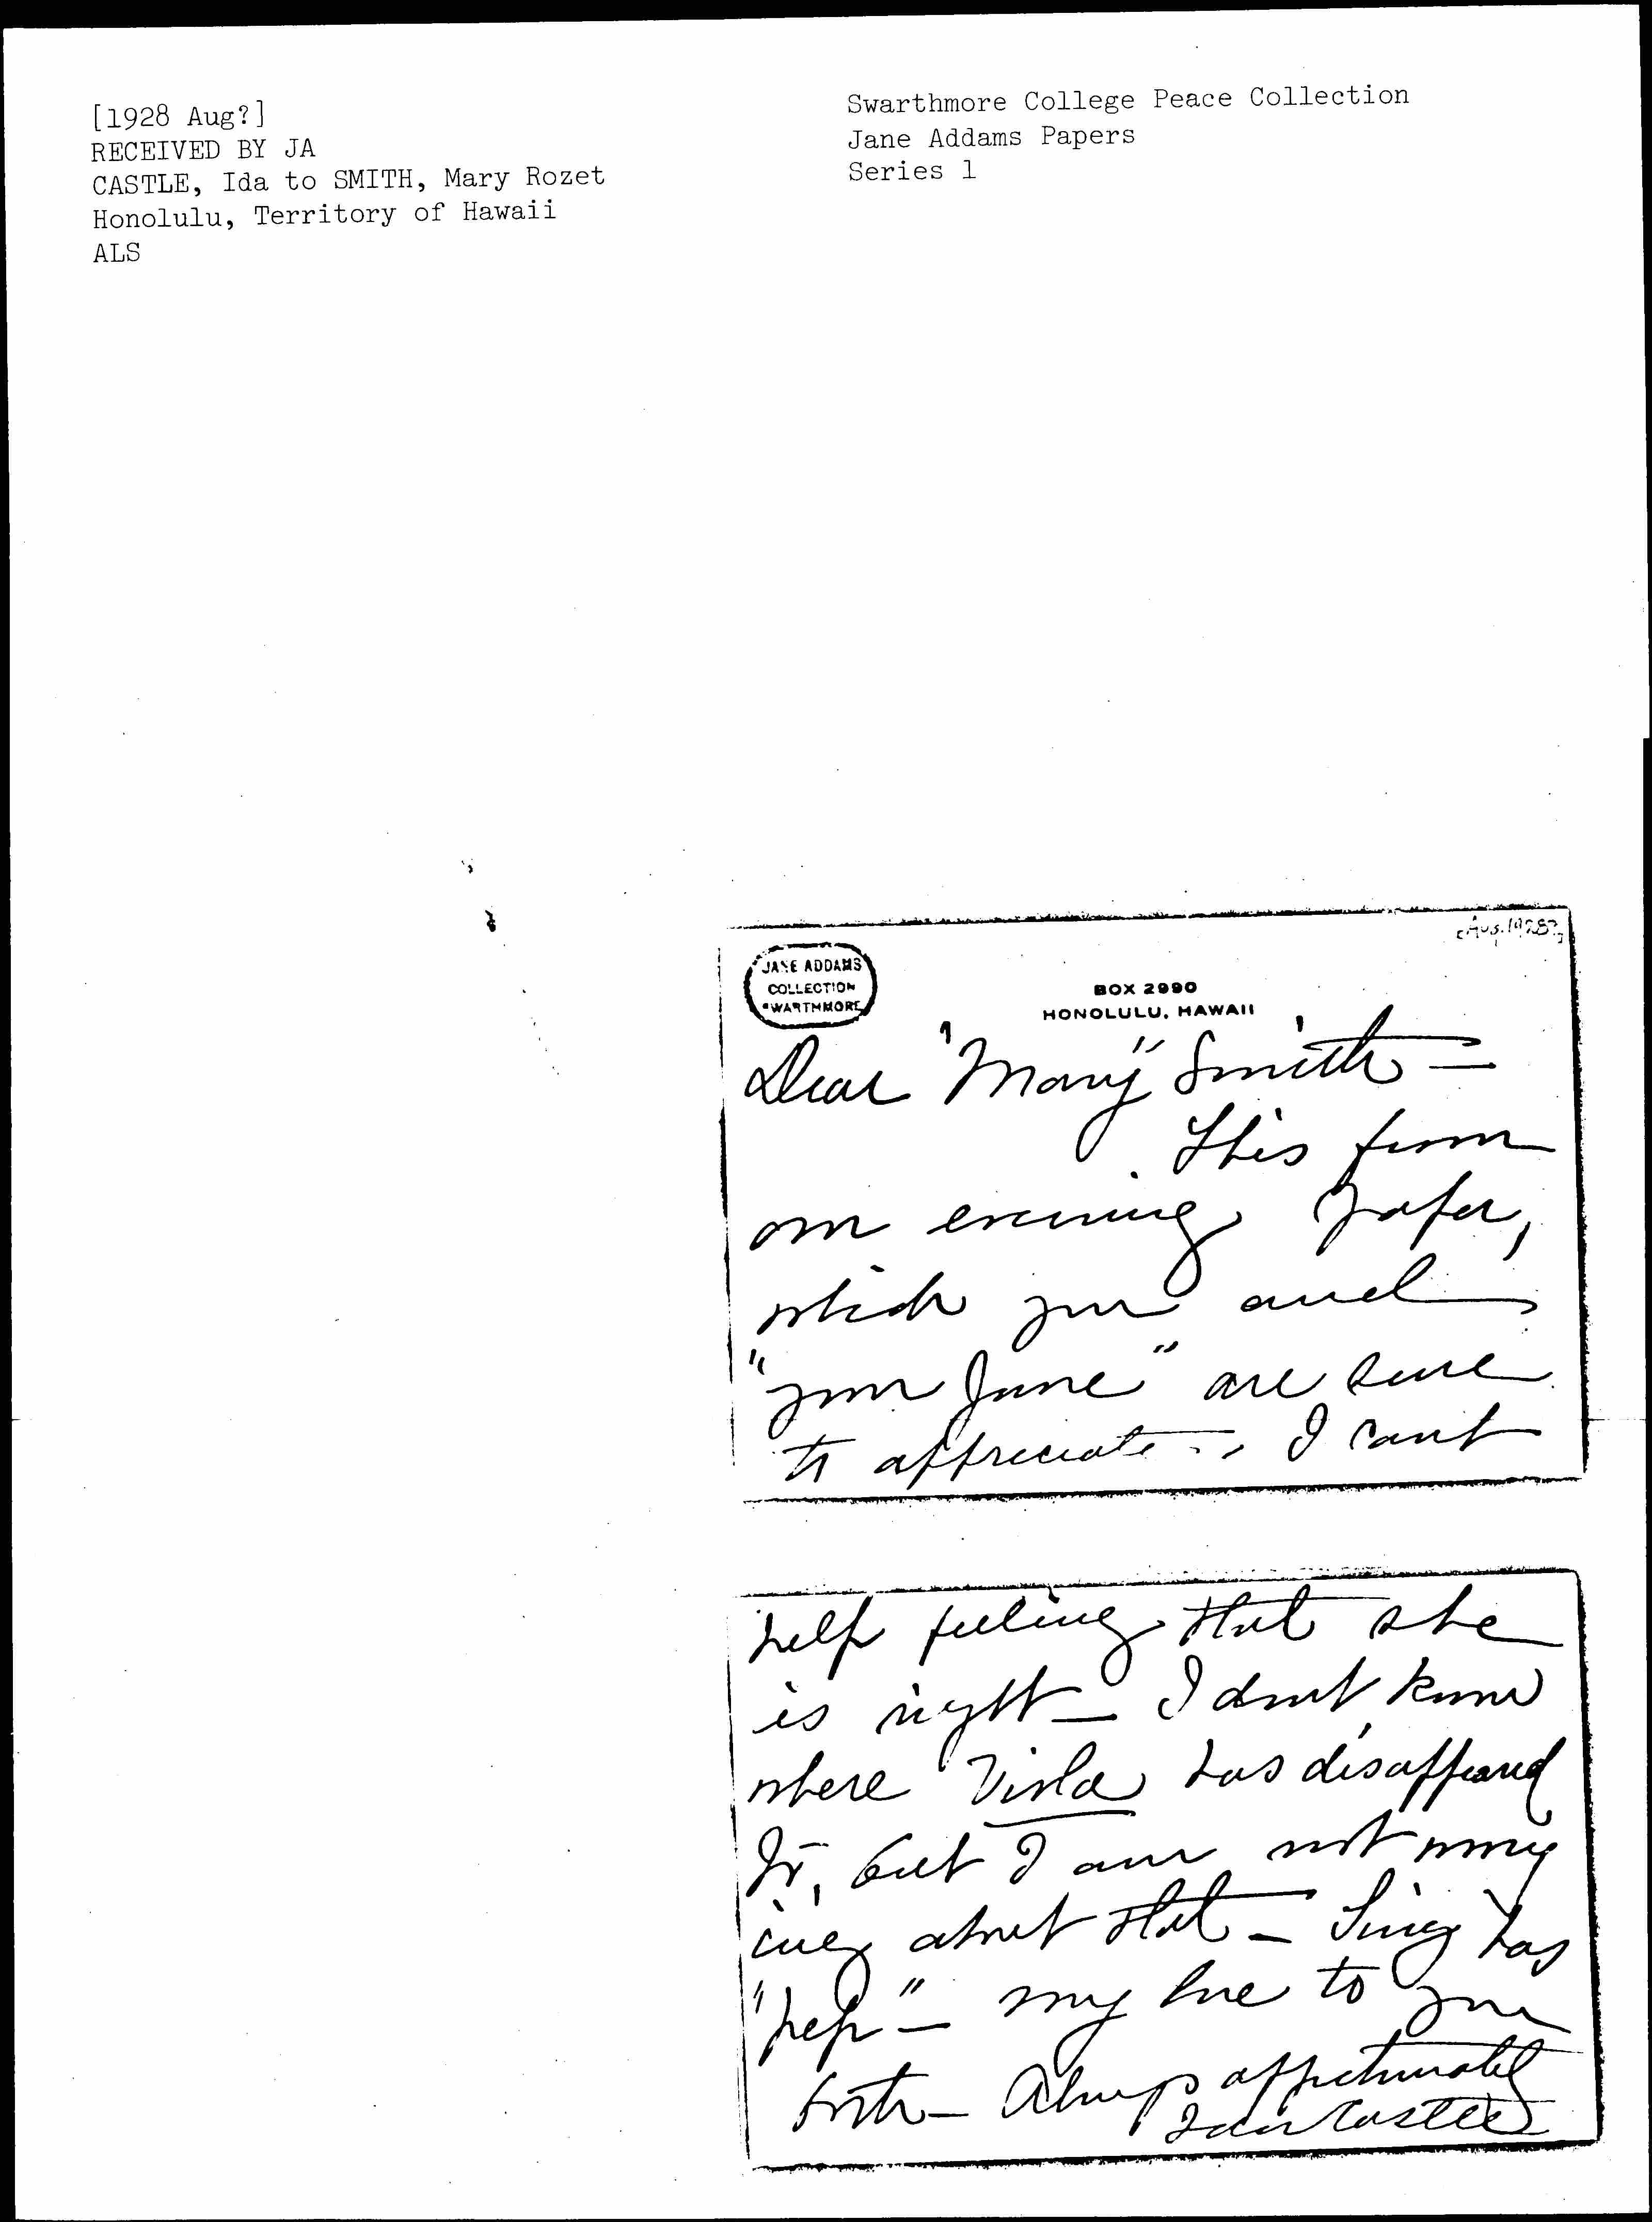 [1928 Aug?]
RECEIVED BY JA
CASTLE, Ida to SMITH, Mary Rozet
Honolulu, Territory of Hawaii
ALS
Swarthmore College Peace Collection
Jane Addams Papers
Series 1
[Aug. 1928?]
JANE ADDAMS
COLLECTION
SWARTHMORE
BOX 2990
HONOLULU, HAWAII
Dear "Mary" Smith –
This from
our evening paper,
which you and
"your Jane" are sure
to appreciate – . I cant
help feeling that she
is right – I don't know
where Viola has disappeared
to, but I am not worry
ing about that –
has
"pep" – my love to you
both – Always affectionately
Ida Castle